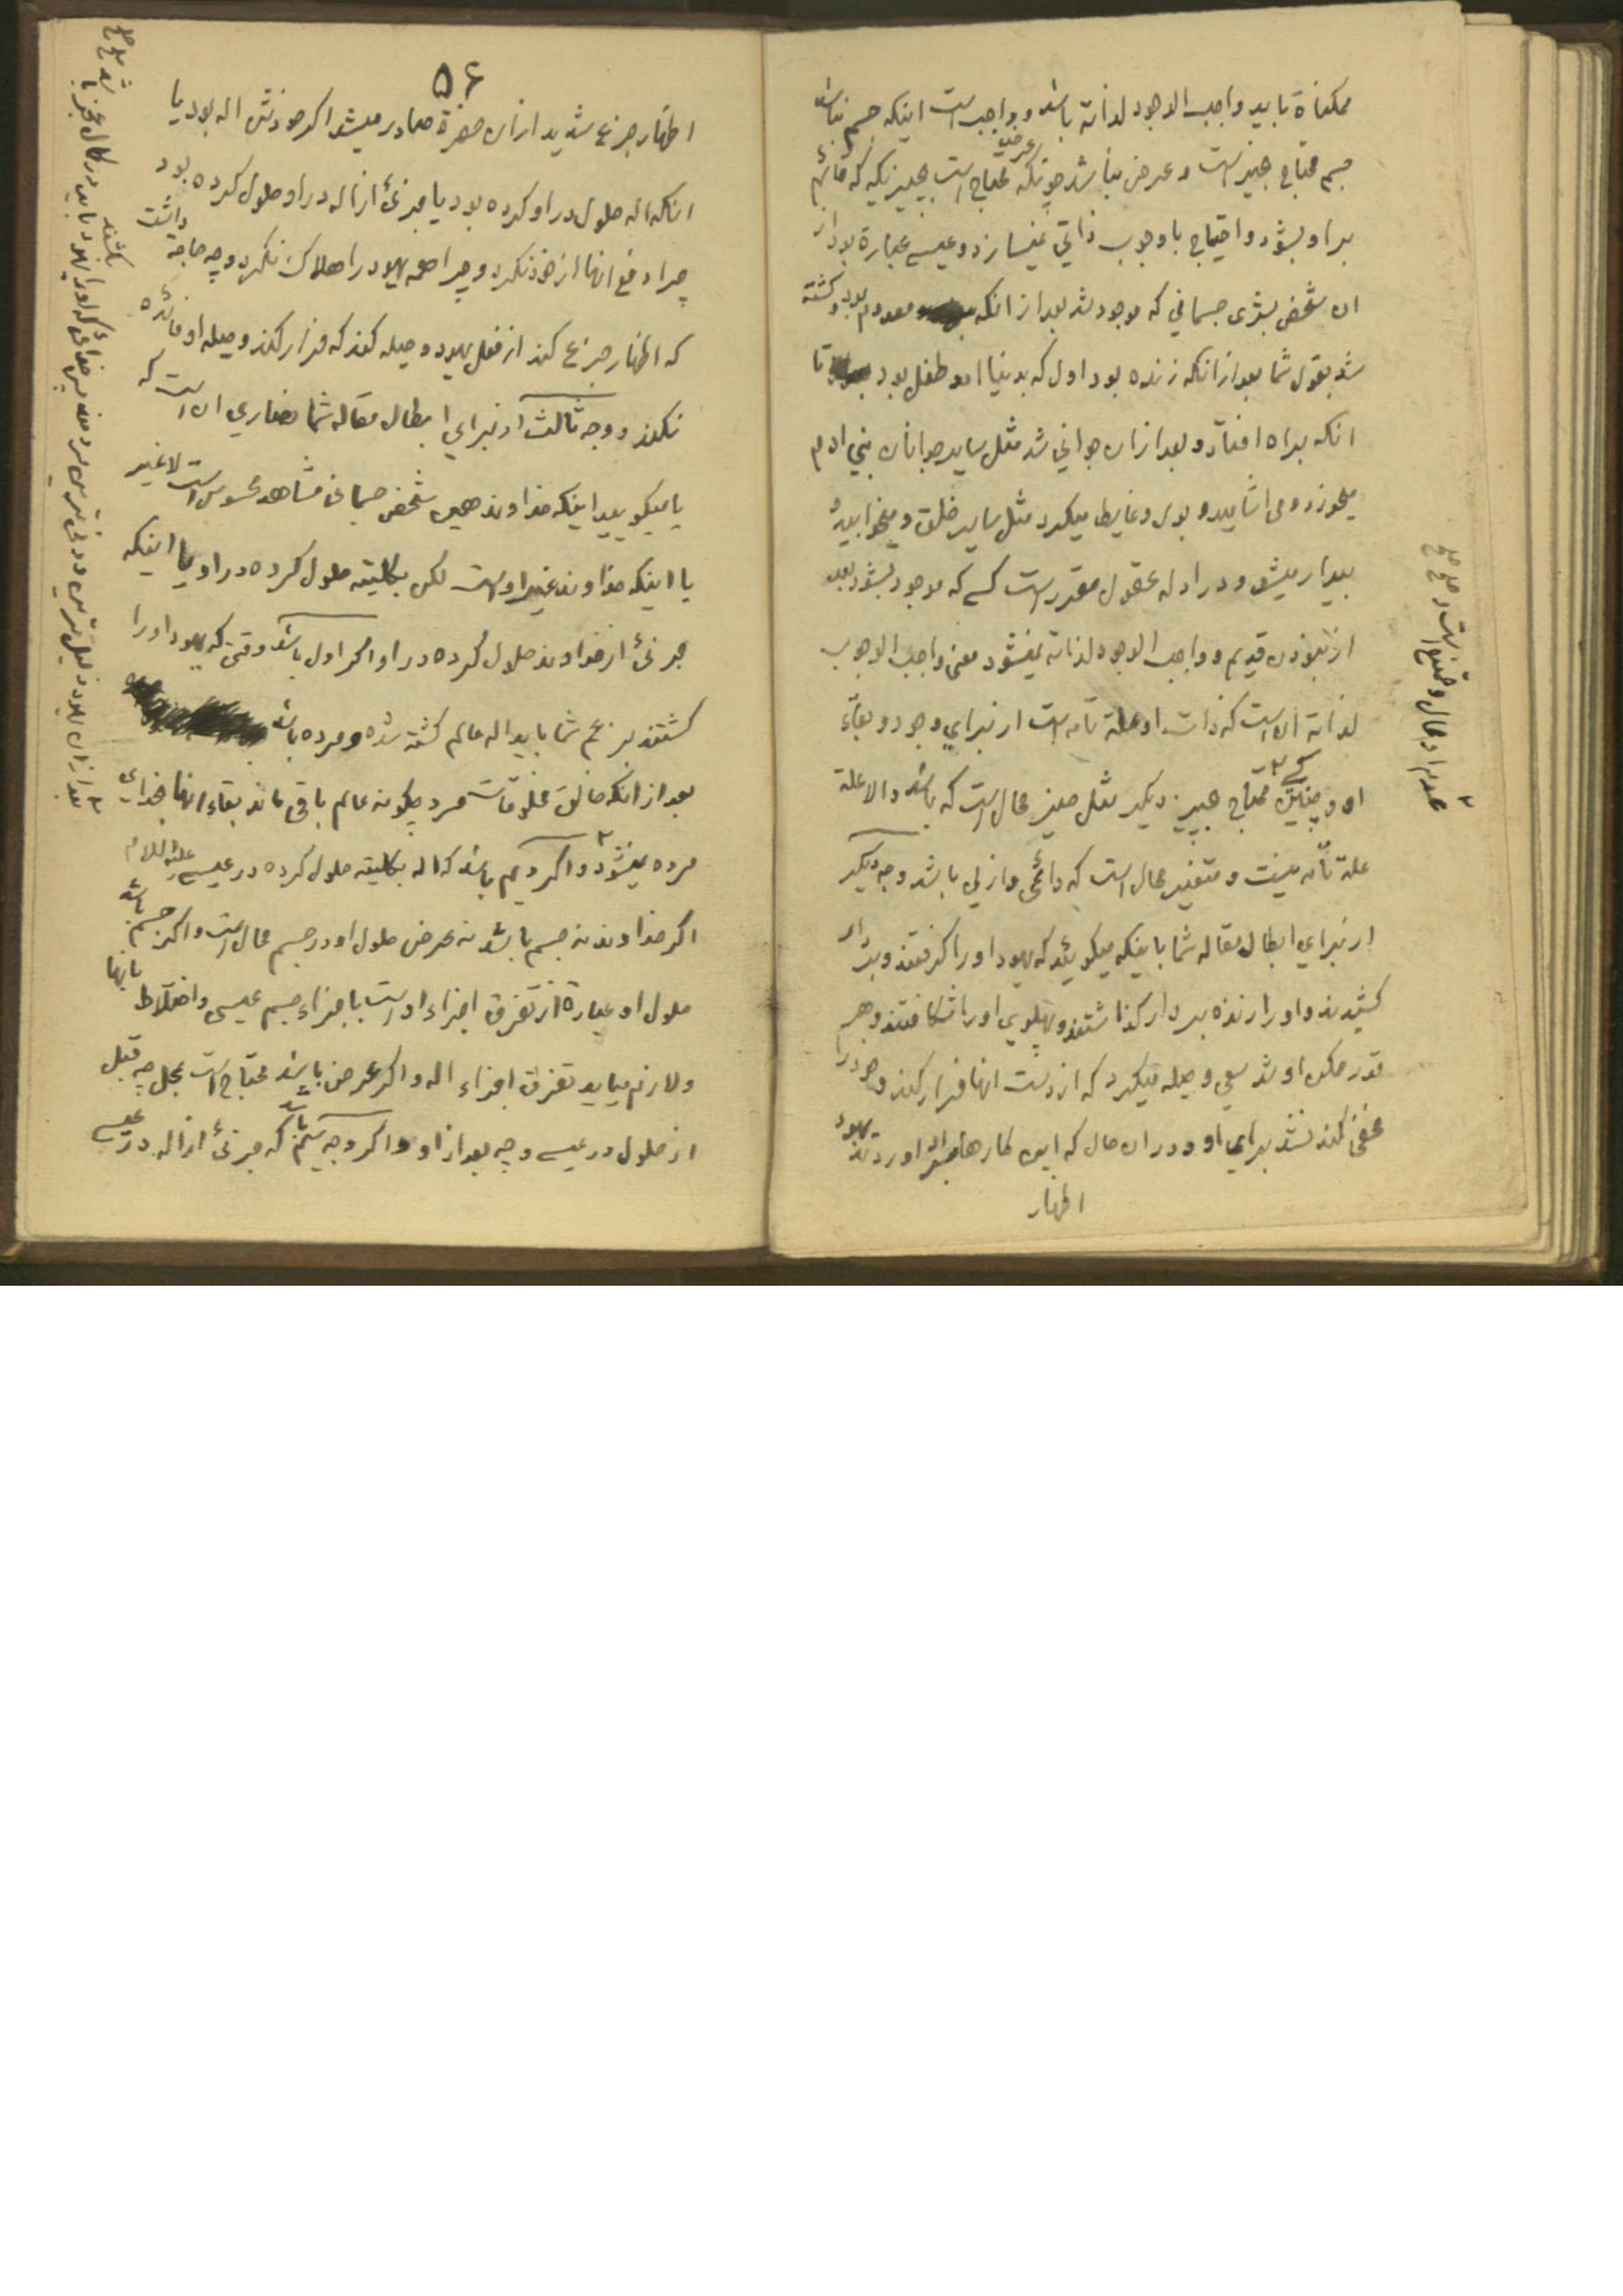 ممکناة باید واجب الوجود لذاته باشد و واجب است اینکه جسم نباشد
جسم محتاج بحیز است و عرض نباشد چونکه عرض محتاج است بچیزیکه که قائم
براو بشود و احتیاج با وجوب ذاتي نمیسازد و عیسی عبارة بود از
ان شخص بشری جسماني که موجود شد بعد از انکه معدوم بود و کشته
شد بقول شما بعد از انکه زنده بود اول که بدنیا امد طفل بود تا
انکه براه افتاد و بعد ازان جواني شد مثل سایر جوانان بني ادم
میخورد و می اشامید و بول و غایط میکرد مثل سایر خلق و میخوابید و
بیدار میشد و در ادله عقول مقرر است کسی که موجود بشود بعد
از نبودن قدیم و واجب الوجود لذاته نمیشود معنی واجب الوجوب
لذاته ان است که ذات او علة تامه است از برای وجود و بقاء
او و چنین کسی محتاج بچیز دیکر مثل حیز محال است که باشد والا علة
علة تامه نیست و متغیر محال است که دائمی و ازلي باشد وجه دیکر
از براي ابطال مقاله شما باینکه میکوئید که یهود او را کرفتند و بدار
کشیدند و او را زنده بردار کذاشتند و پهلوی او را شکافتند و هر
قدر ممکن او شد سعی و حیله میکرد که از دست انها فرار کند و خود را
مخفی کند نشد برای او و در ان حال که این کارها بسر او اوردند یهود
اظهار
عدم او محال و ممتنع است صح صح
۵۶
اظهار جزع شدید از ان حضرة صادر میشد اکر خودش اله بود یا
انکه اله حلول در او کرده بود یا جزئ از اله در او حلول کرده بود
چرا دفع انها از خود نکرد و چرا همه یهود را هلاک نکرد و چه حاجة داشت
که اظهار جزع کند از فعل یهود و حیله کند که فرار کند و حیله او فائده
نکند و وجه ثالث از براي ابطال مقاله شما نصاري ان است که
یا میکویید اینکه خداوند همین شخص جسمانی مشاهد محسوس است لا غیر
یا اینکه خداوند غیر اوست لکن بکلیته حلول کرده در او یا اینکه
جزئ از خداوند حلول کرده در او اکر اول باشد وقتی که یهود او را
کشتند بزعم شما باید اله عالم کشته شده و مرده باشد
بعد از انکه خالق مخلوقات مرد چکونه عالم باقی ماند بقاء انها بخدای
مرده نمیشود و اکر دویم باشد که اله بکلیته حلول کرده در عیسی علیه السلام
اکر خداوند نه جسم باشد نه عرض حلول او در جسم محال است و اکر جسم باشد
حلول او عبارة از تفرق اجزاء اوست با اجزاء جسم عیسی و اختلاط بانها
ولازم میاید تفرق اجزاء اله و اکر عرض باشد محتاج است بمحل چه قبل
از حلول در عیسی و چه بعد از او و اکر وجه سیم باشد که جزئ از اله در عیسی